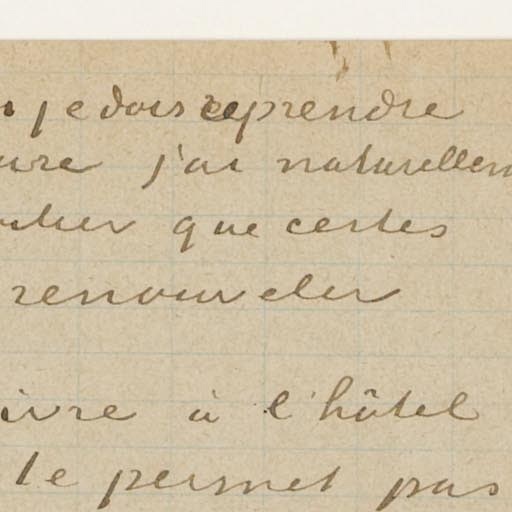 je dois reprendre
j'ai naturellem
que certes
renouveler
ivre à l'hôtel
le permet pas